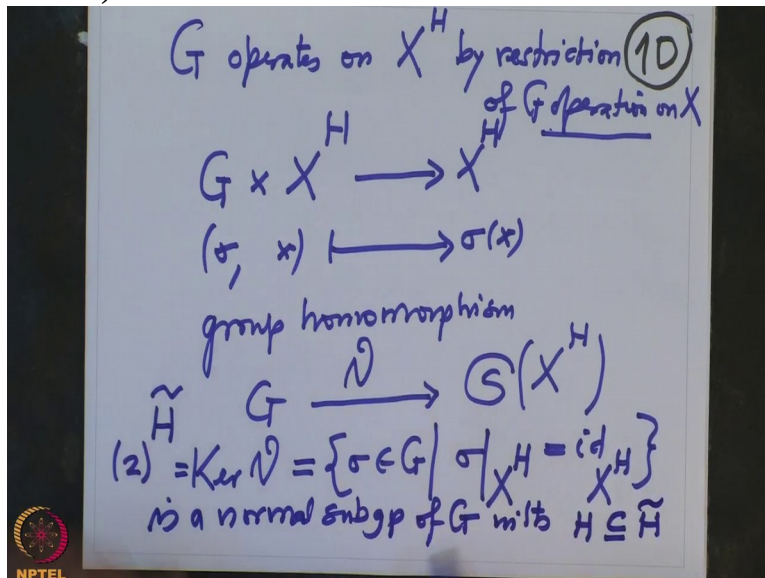 G operates on X^H by restriction 10
of G operation on X
G × X^H ⟶ X^H
(σ, x) ⟼ σ(x)
group homomorphism
G ⟶^ϑ 𝔖(X^H)
(2) H̃ = Ker ϑ = {σ ∈ G | σ|_{X^H} = id_{X^H}}
is a normal subgp of G with H ⊆ H̃
NPTEL